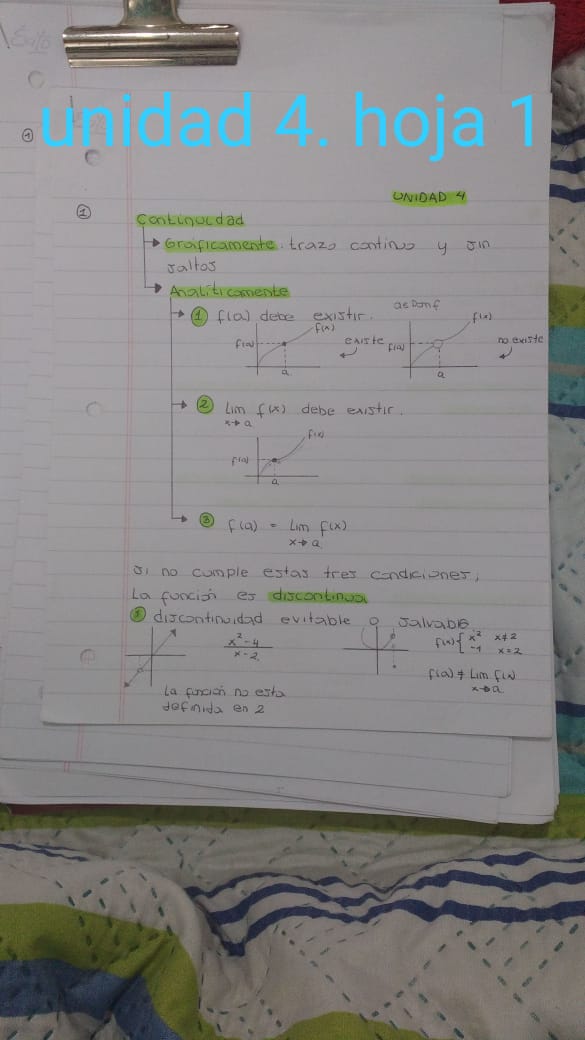 unidad 4. hoja 1
①
UNIDAD 4
① Continuidad
Graficamente: trazo continuo y sin
saltos
Analiticamente
① f(a) debe existir.
f(x)
f(a)
existe
a
f(x)
f(a)
no existe
a
② Lim f(x) debe existir.
x→a
f(x)
f(a)
a
③ f(a) = Lim f(x)
x→a
si no cumple estas tres condiciones,
La función es discontinua
① discontinuidad evitable o salvable
x²-4
x-2
f(x){ x² x≠2
-1 x=2
f(a) ≠ Lim f(x)
x→a
La función no esta
definida en 2